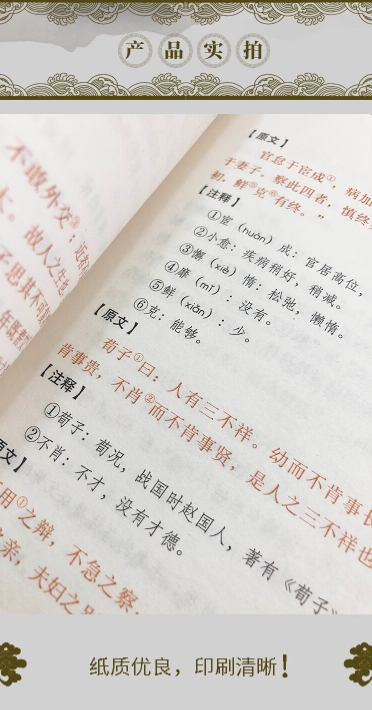 产品实拍
不敢外交
故人之生也
【原文】
官怠于宦成①，病加
于妻子。察此四者，慎终
朝，鲜⑤克⑥有终。”
【注释】
①宦（huàn）成：官居高位，
②小愈：疾病稍好，稍减。
③懈（xiè）惰：松弛，懒惰。
④靡（mǐ）：没有。
⑤鲜（xiǎn）：少。
⑥克：能够。
【原文】
荀子①曰：人有三不祥。幼而不肯事长
肯事贵，不肖②而不肯事贤，是人之三不祥也
【注释】
①荀子：荀况，战国时赵国人，著有《荀子》
②不肖：不才，没有才德。
原文】
用①之辩，不急之察
亲，夫妇之别
纸质优良，印刷清晰！